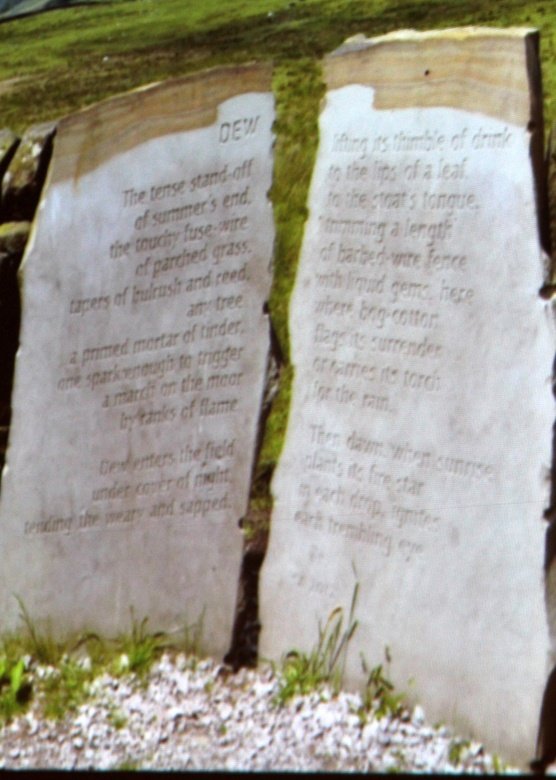 DEW
The tense stand-off
of summer's end,
the touchy fuse-wire
of parched grass,
tapers of bulrush and reed,
any tree
a primed mortar of tinder,
one spark enough to trigger
a march on the moor
by ranks of flame.
Dew enters the field
under cover of night,
tending the weary and sapped,
lifting its thimble of drink
to the lips of a leaf,
to the stoat's tongue,
trimming a length
of barbed-wire fence
with liquid gems, here
where bog-cotton
flags its surrender
or carries its torch
for the rain.
Then dawn, when sunrise
plants its fire-star
in each drop, ignites
each trembling eye.